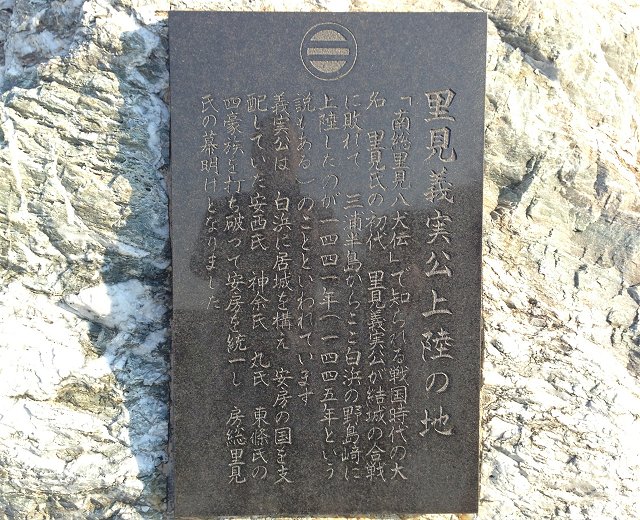 里見義実公上陸の地
「南総里見八犬伝」で知られる戦国時代の大
名 里見氏の初代 里見義実公が結城の合戦
に敗れて 三浦半島からここ白浜の野島崎に
上陸したのが一四四一年(一四四五年という
説もある)のことといわれています
義実公は 白浜に居城を構え 安房の国を支
配していた安西氏 神余氏 丸氏 東條氏の
四豪族を打ち破って安房を統一し 房総里見
氏の幕明けとなりました